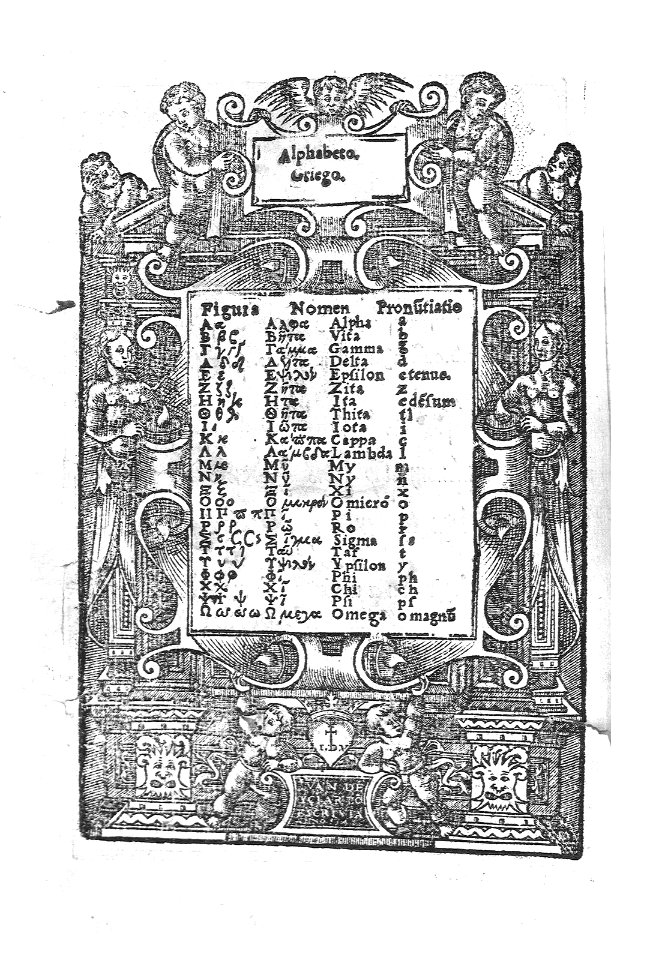 Alphabeto.
Griego.
Figura Nomen Pronūtiatio
Α α Αλφα Alpha a
Β β ϐ Βῆτα Vita b
Γ γ Γάμμα Gamma g
Δ δ Δέλτα Delta d
Ε ε Εψιλόν Epsilon e tenue.
Ζ ζ Ζῆτα Zita z
Η η Ητα Ita e dēsum
Θ θ ϑ Θῆτα Thita tl
Ι ι Ιῶτα Iota i
Κ κ Κάππα Cappa c
Λ λ Λάμβδα Lambda l
Μ μ Μῦ My m
Ν ν Νῦ Ny n
Ξ ξ Ξῖ Xi x
Ο ο ο Ο μικρόν Omicrō o
Π Π ϖ π Πῖ Pi p
Ρ ρ ρ Ρῶ Ro r
Σ σ C C ς Σίγμα Sigma ſ s
Τ τ τ Ταῦ Taf t
Υ υ υ Υψιλόν Ypsilon y
Φ φ φ Φῖ Phi ph
Χ χ Χῖ Chi ch
Ψ ψ Ψῖ Pſi pſ
Ω ω ω ω Ω μεγα Omega o magnū
I. D. V
IVAN DE
YCIAR LO
ESCREVIA